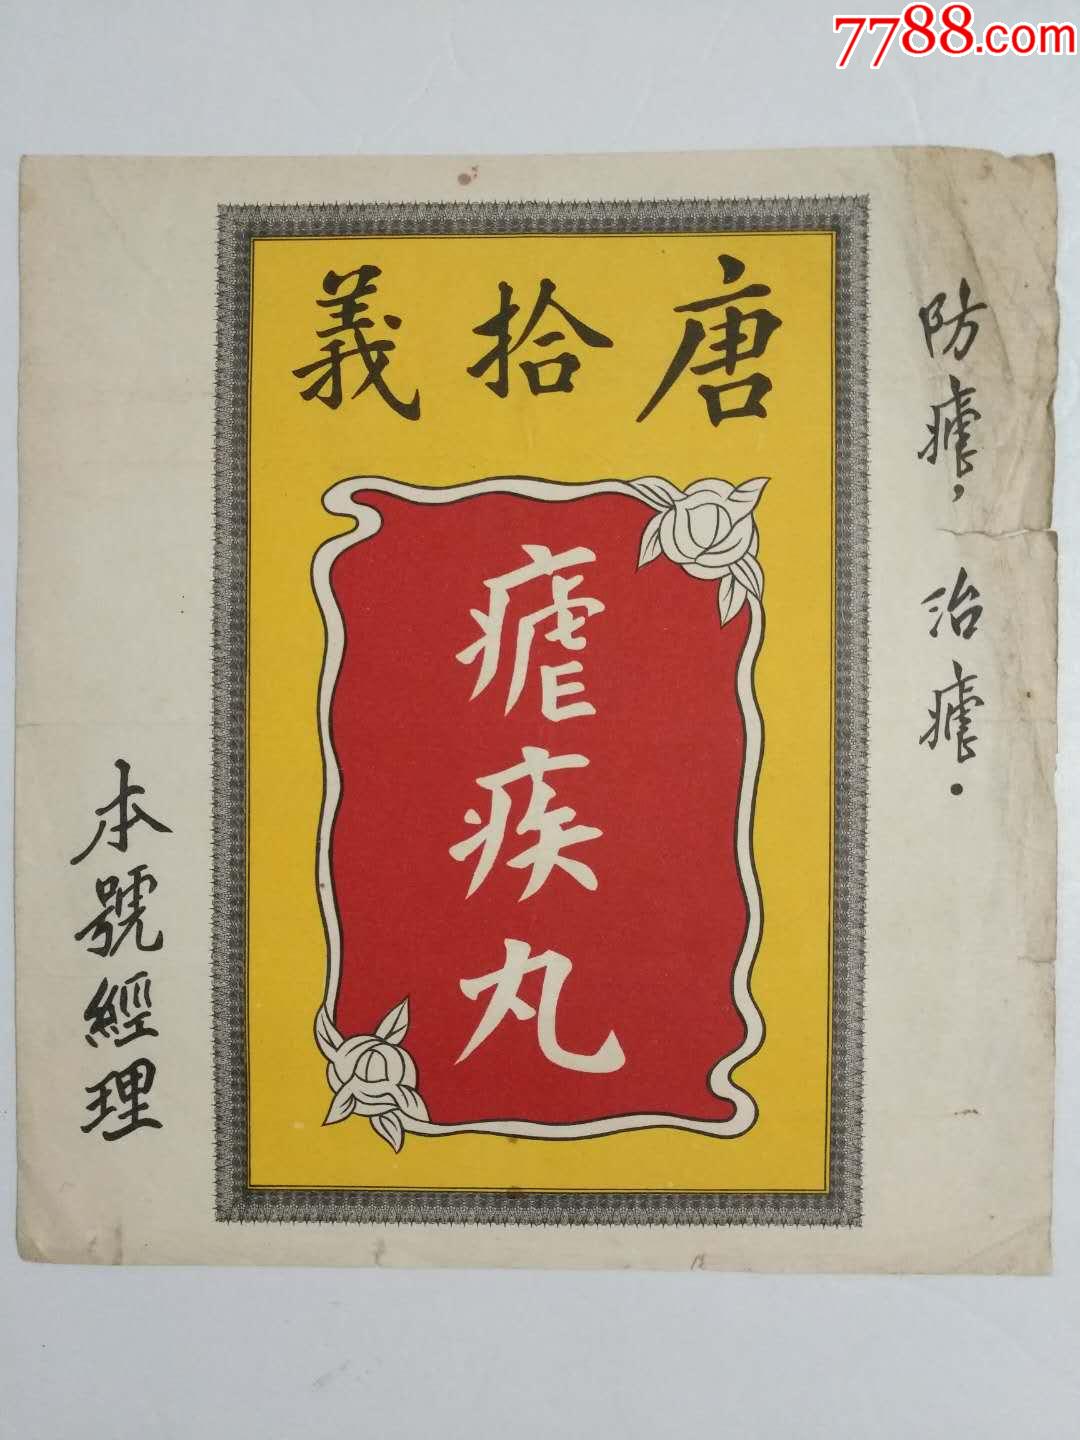 7788.com
唐拾義
瘧疾丸
防瘧，治瘧．
本號經理